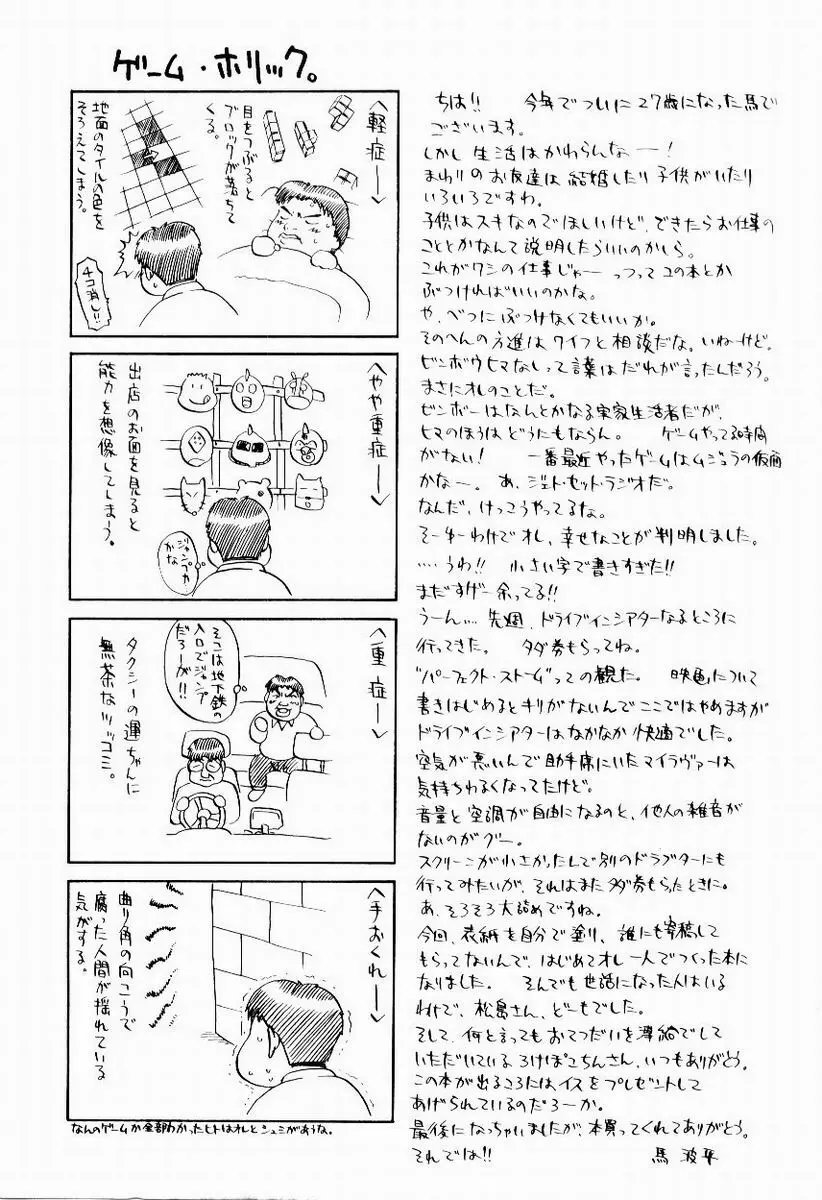 ゲーム・ホリック。
〈軽症―〉
目をつぶると
ブロックが落ちて
くる。
地面のタイルの色を
そろえてしまう。
4コ消し!!
〈やや重症―〉
出店のお面を見ると
能力を想像してしまう。
ジャンプカ
かな
〈重症―〉
そこは地下鉄の
入口でジャンプ
だろーが!!
タクシーの運ちゃんに
無茶なツッコミ。
〈手おくれ―〉
曲り角の向こうで
腐った人間が揺れている
気がする。
なんのゲームか全部わかったヒトはオレとシュミがあうな。
ちは!! 今年でついに27歳になった馬で
ございます。
しかし生活はかわらんなー!
まわりのお友達は結婚したり子供がいたり
いろいろですわ。
子供はスキなのでほしいけど、できたらお仕事の
こととかなんて説明したらいいのかしら。
これがワシの仕事じゃー っつってコの本とか
ぶつければいいのかな。
や、べつにぶつけなくてもいいか。
そのへんの方進はワイフと相談だな。いねーけど。
ビンボウヒマなしって言葉はだれが言ったんだろう。
まさにオレのことだ。
ビンボーはなんとかなる実家生活者だが、
ヒマのほうはどうにもならん。 ゲームやってる時間
がない! 一番最近やったゲームはムジュラの仮面
かなー。 あ、ジェト・セット・ラジオだ。
なんだ、けっこうやってるな。
そーゆーわけでオレ、幸せなことが判明しました。
…うわ!! 小さい字で書きすぎた!!
まだすげー余ってる!!
うーん… 先週、ドライブインシアターなるところに
行ってきた。 タダ券もらってね。
"パーフェクト・ストーム"っての観た。 映画について
書きはじめるとキリがないんでここではやめますが
ドライブインシアターはなかなか快適でした。
空気が悪いんで助手席にいたマイラヴァーは
気持ちわるくなってたけど。
音量と空調が自由になるのと、他人の雑音が
ないのがグー。
スクリーンが小さかったんで別のドラブターにも
行ってみたいが、それはまたタダ券もらたときに。
あ、そろそろ大詰めですね。
今回、表紙を自分で塗り、誰にも寄稿して
もらってないんで、はじめてオレ一人でつくった本に
なりました。 そんでも世話になった人はいる
わけで、松島さん、どーもでした。
そして、何と言ってもおてつだいを薄給でして
いただいている ろけぽこちんさん、いつもありがとう。
この本が出るころにはイスをプレゼントして
あげられているのだろーか。
最後になっちゃいましたが、本買ってくれてありがとう。
それでは!! 馬 波平